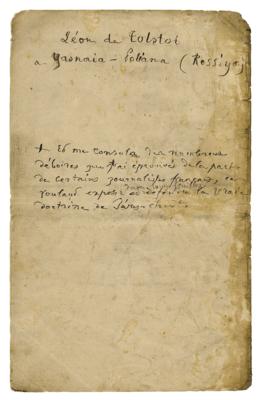 Léon de Tolstoï
a Yasnaïa-Poliana (Rossiya)
+ Et me consola des nombreux
déboires que j'ai éprouvés de la part
de certains journalistes français, en
voulant exposer et défendre la vraie
doctrine de